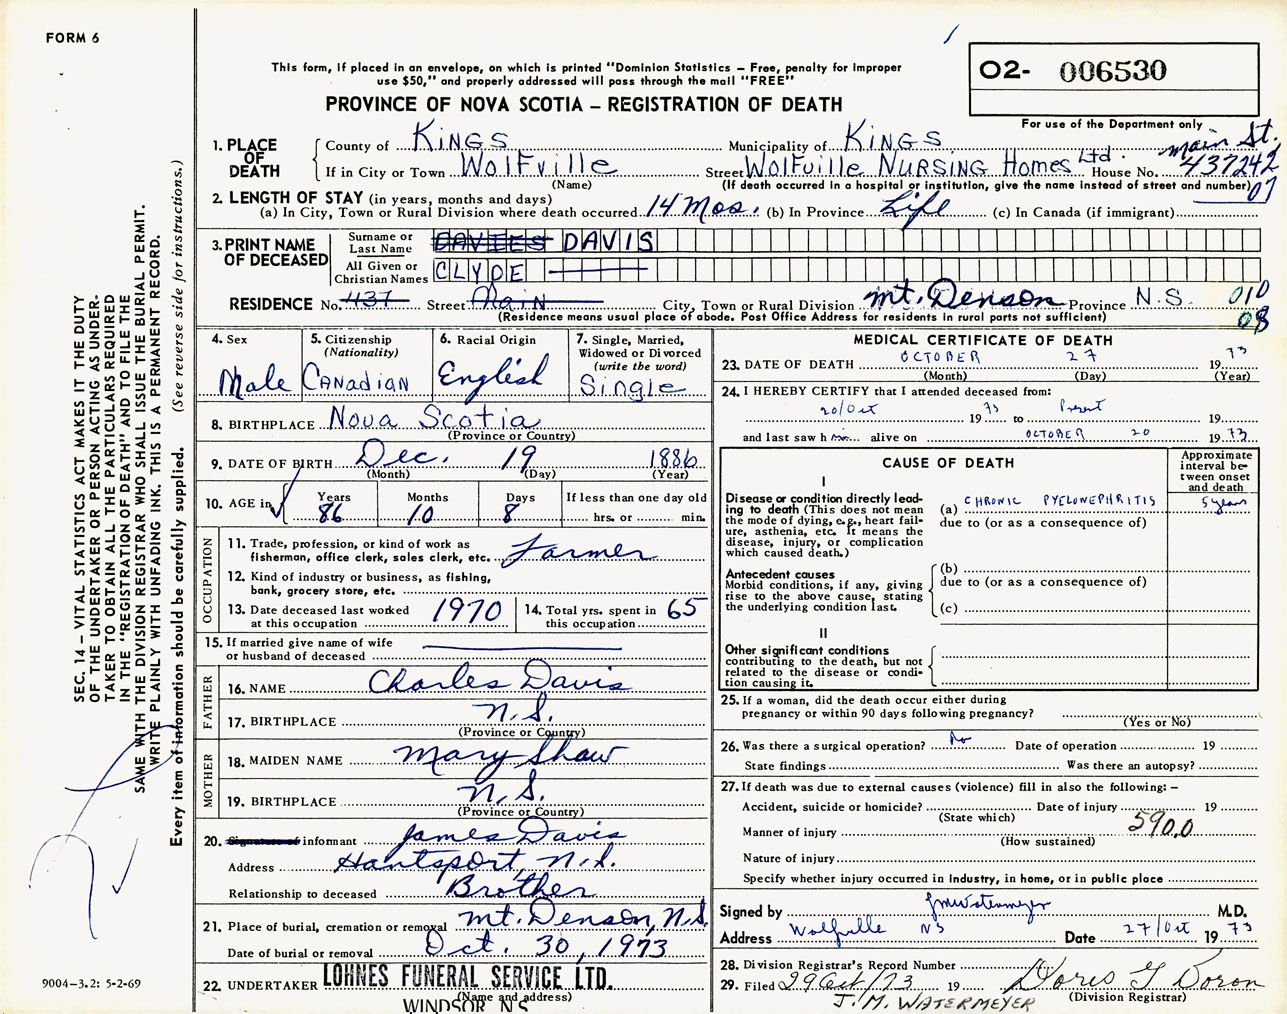 FORM 6
This form, if placed in an envelope, on which is printed "Dominion Statistics – Free, penalty for improper
use $50," and properly addressed will pass through the mail "FREE"
O2- 006530
PROVINCE OF NOVA SCOTIA – REGISTRATION OF DEATH
For use of the Department only
1. PLACE OF DEATH
County of Kings Municipality of Kings
If in City or Town Wolfville Street Wolfville Nursing Homes Ltd. House No. 437242
Main St.
07
(Name) (If death occurred in a hospital or institution, give the name instead of street and number)
2. LENGTH OF STAY (in years, months and days)
(a) In City, Town or Rural Division where death occurred 14 Mos. (b) In Province Life (c) In Canada (if immigrant)
3. PRINT NAME OF DECEASED
Surname or Last Name DAVIES DAVIS
All Given or Christian Names CLYDE
RESIDENCE No. 437 Street Main City, Town or Rural Division Mt. Denson Province N.S. 010
08
(Residence means usual place of abode. Post Office Address for residents in rural parts not sufficient)
4. Sex Male
5. Citizenship (Nationality) Canadian
6. Racial Origin English
7. Single, Married, Widowed or Divorced (write the word) Single
8. BIRTHPLACE Nova Scotia
(Province or Country)
9. DATE OF BIRTH Dec. 19 1886
(Month) (Day) (Year)
10. AGE in Years 86 Months 10 Days 8 If less than one day old hrs. or min.
OCCUPATION
11. Trade, profession, or kind of work as
fisherman, office clerk, sales clerk, etc. Farmer
12. Kind of industry or business, as fishing,
bank, grocery store, etc.
13. Date deceased last worked at this occupation 1970
14. Total yrs. spent in this occupation 65
15. If married give name of wife
or husband of deceased
FATHER
16. NAME Charles Davis
17. BIRTHPLACE N.S.
(Province or Country)
MOTHER
18. MAIDEN NAME Mary Shaw
19. BIRTHPLACE N.S.
(Province or Country)
20. Signature of informant James Davis
Address Hantsport, N.S.
Relationship to deceased Brother
21. Place of burial, cremation or removal Mt. Denson, N.S.
Date of burial or removal Oct. 30, 1973
22. UNDERTAKER LOHNES FUNERAL SERVICE LTD.
(Name and address)
WINDSOR N.S.
MEDICAL CERTIFICATE OF DEATH
23. DATE OF DEATH OCTOBER 27 1973
(Month) (Day) (Year)
24. I HEREBY CERTIFY that I attended deceased from:
20/Oct 1973 to Present 19
and last saw h im alive on OCTOBER 20 1973
CAUSE OF DEATH
Approximate interval between onset and death
I
Disease or condition directly leading to death (This does not mean the mode of dying, e.g., heart failure, asthenia, etc. It means the disease, injury, or complication which caused death.)
(a) CHRONIC PYELONEPHRITIS 5 years
due to (or as a consequence of)
Antecedent causes
Morbid conditions, if any, giving rise to the above cause, stating the underlying condition last.
(b)
due to (or as a consequence of)
(c)
II
Other significant conditions
contributing to the death, but not related to the disease or condition causing it.
25. If a woman, did the death occur either during
pregnancy or within 90 days following pregnancy?
(Yes or No)
26. Was there a surgical operation? No Date of operation 19
State findings Was there an autopsy?
27. If death was due to external causes (violence) fill in also the following: –
Accident, suicide or homicide? Date of injury 19
(State which)
Manner of injury 590.0
(How sustained)
Nature of injury
Specify whether injury occurred in industry, in home, or in public place
Signed by JMWatermeyer M.D.
Address Wolfville NS Date 27/Oct 1973
28. Division Registrar's Record Number
29. Filed 29 Oct/73 19 Doris G Doron
(Division Registrar)
J. M. WATERMEYER
SEC. 14 – VITAL STATISTICS ACT MAKES IT THE DUTY
OF THE UNDERTAKER OR PERSON ACTING AS UNDER-
TAKER TO OBTAIN ALL THE PARTICULARS REQUIRED
IN THE "REGISTRATION OF DEATH" AND TO FILE THE
SAME WITH THE DIVISION REGISTRAR WHO SHALL ISSUE THE BURIAL PERMIT.
WRITE PLAINLY WITH UNFADING INK. THIS IS A PERMANENT RECORD.
Every item of information should be carefully supplied. (See reverse side for instructions.)
9004-3.2: 5-2-69